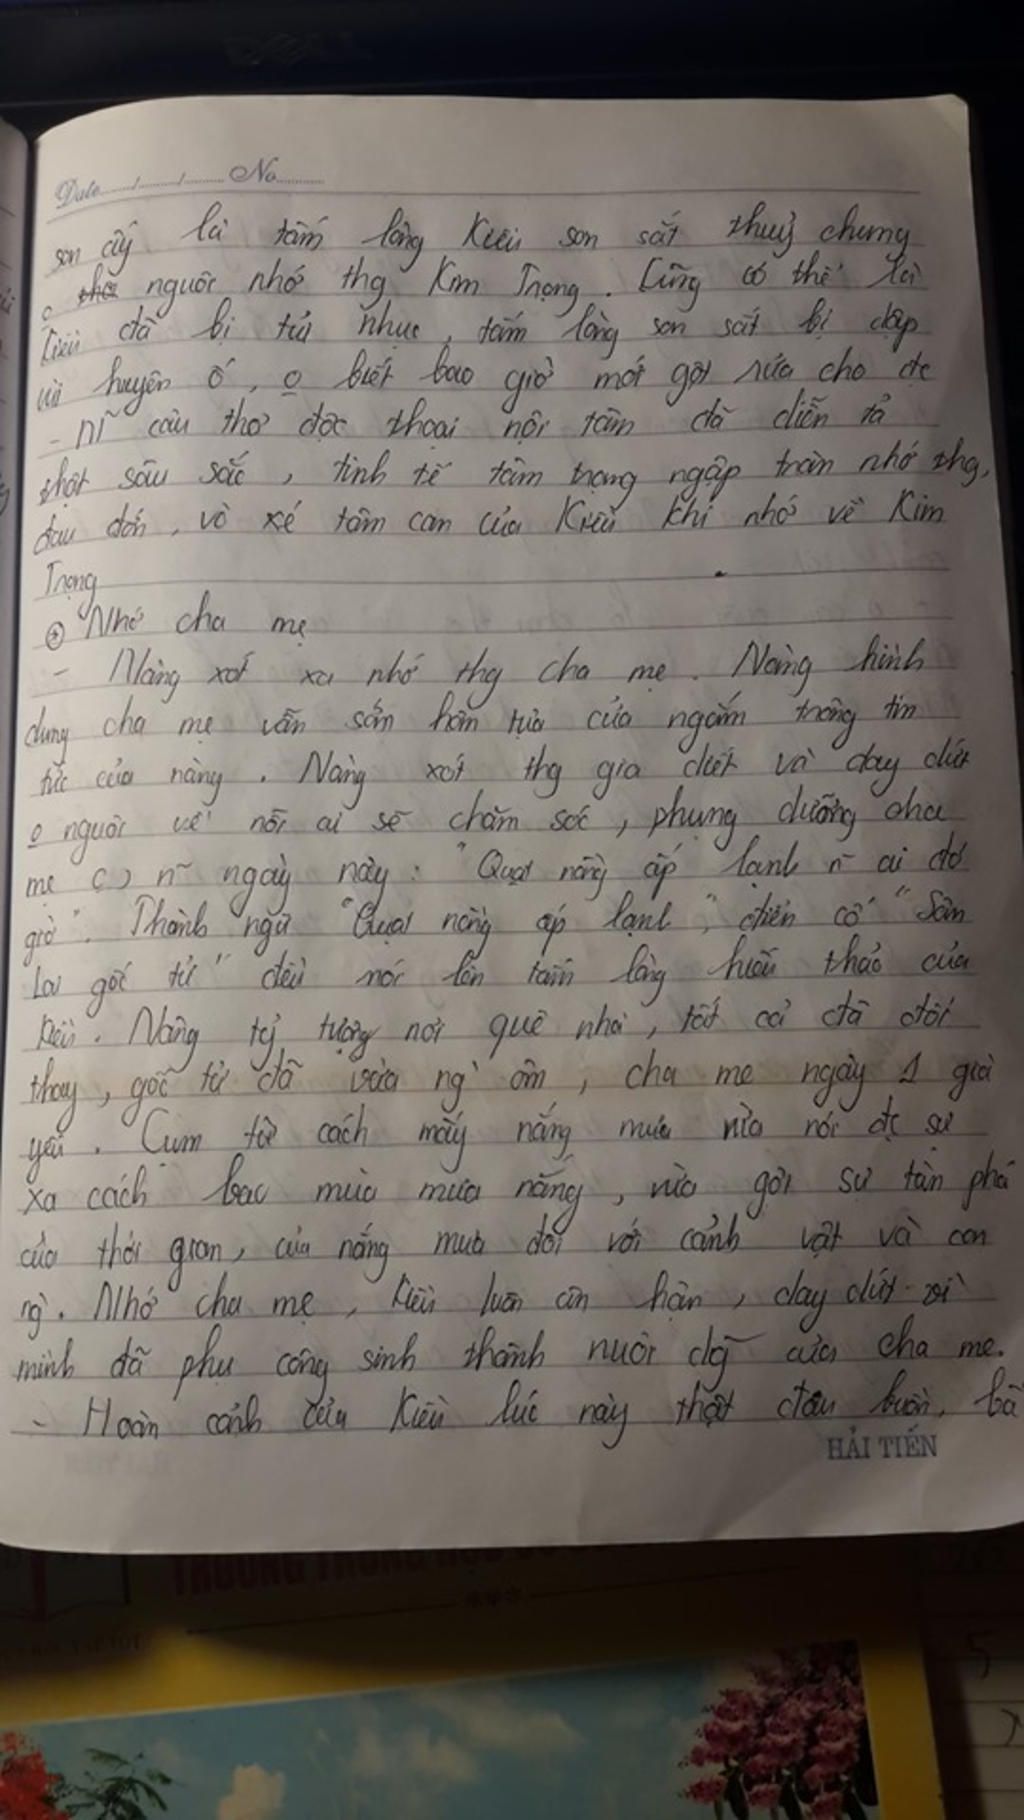 Date....../......./........ No..........
son ấy là tấm lòng Kiều son sắt thuỷ chung
o nguôi nhớ thg Kim Trọng. Cũng có thể là
Kiều đã bị tủi nhục, tấm lòng son sắt bị dập
vùi hoen ố, o biết bao giờ mới gột rửa cho đc
- Nĩ câu thơ độc thoại nội tâm đã diễn tả
thật sâu sắc, tinh tế tâm trạng ngập tràn nhớ thg,
đau đớn, vò xé tâm can của Kiều khi nhớ về Kim
Trọng
Nhớ cha mẹ
- Nàng xót xa nhớ thg cha mẹ. Nàng hình
dung cha mẹ vẫn sớm hôm tựa cửa ngóng trông tin
tức của nàng. Nàng xót thg gia diết và day dứt
o nguôi về nỗi ai sẽ chăm sóc, phụng dưỡng cha
mẹ n~ ngày này: "Quạt nồng ấp lạnh n~ ai đó
giờ". Thành ngữ "Quạt nồng ấp lạnh", điển cố "Sân
Lai gốc tử" đều nói lên tấm lòng hiếu thảo của
Kiều. Nàng tg tượng nơi quê nhà, tất cả đã đổi
thay, gốc tử đã vừa ng` ôm, cha mẹ ngày 1 già
yếu. Cụm từ cách mấy nắng mưa vừa nói đc sự
xa cách bao mùa mưa nắng, vừa gợi sự tàn phá
của thời gian, của nắng mưa đối với cảnh vật và con
ng`. Nhớ cha mẹ, Kiều luôn ân hận, day dứt vì
mình đã phụ công sinh thành nuôi dg~ của cha mẹ.
- Hoàn cảnh của Kiều lúc này thật đau buồn,
HẢI TIẾN